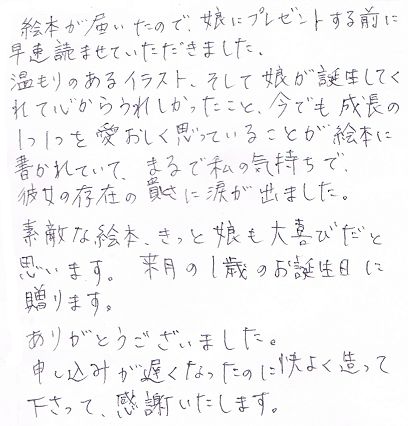 絵本が届いたので、娘にプレゼントする前に
早速読ませていただきました。
温もりのあるイラスト、そして娘が誕生してく
れて心からうれしかったこと、今でも成長の
1つ1つを愛おしく思っていることが絵本に
書かれていて、まるで私の気持ちで、
彼女の存在の貴さに涙が出ました。
素敵な絵本、きっと娘も大喜びだと
思います。来月の1歳のお誕生日に
贈ります。
ありがとうございました。
申し込みが遅くなったのに快よく造って
下さって、感謝いたします。